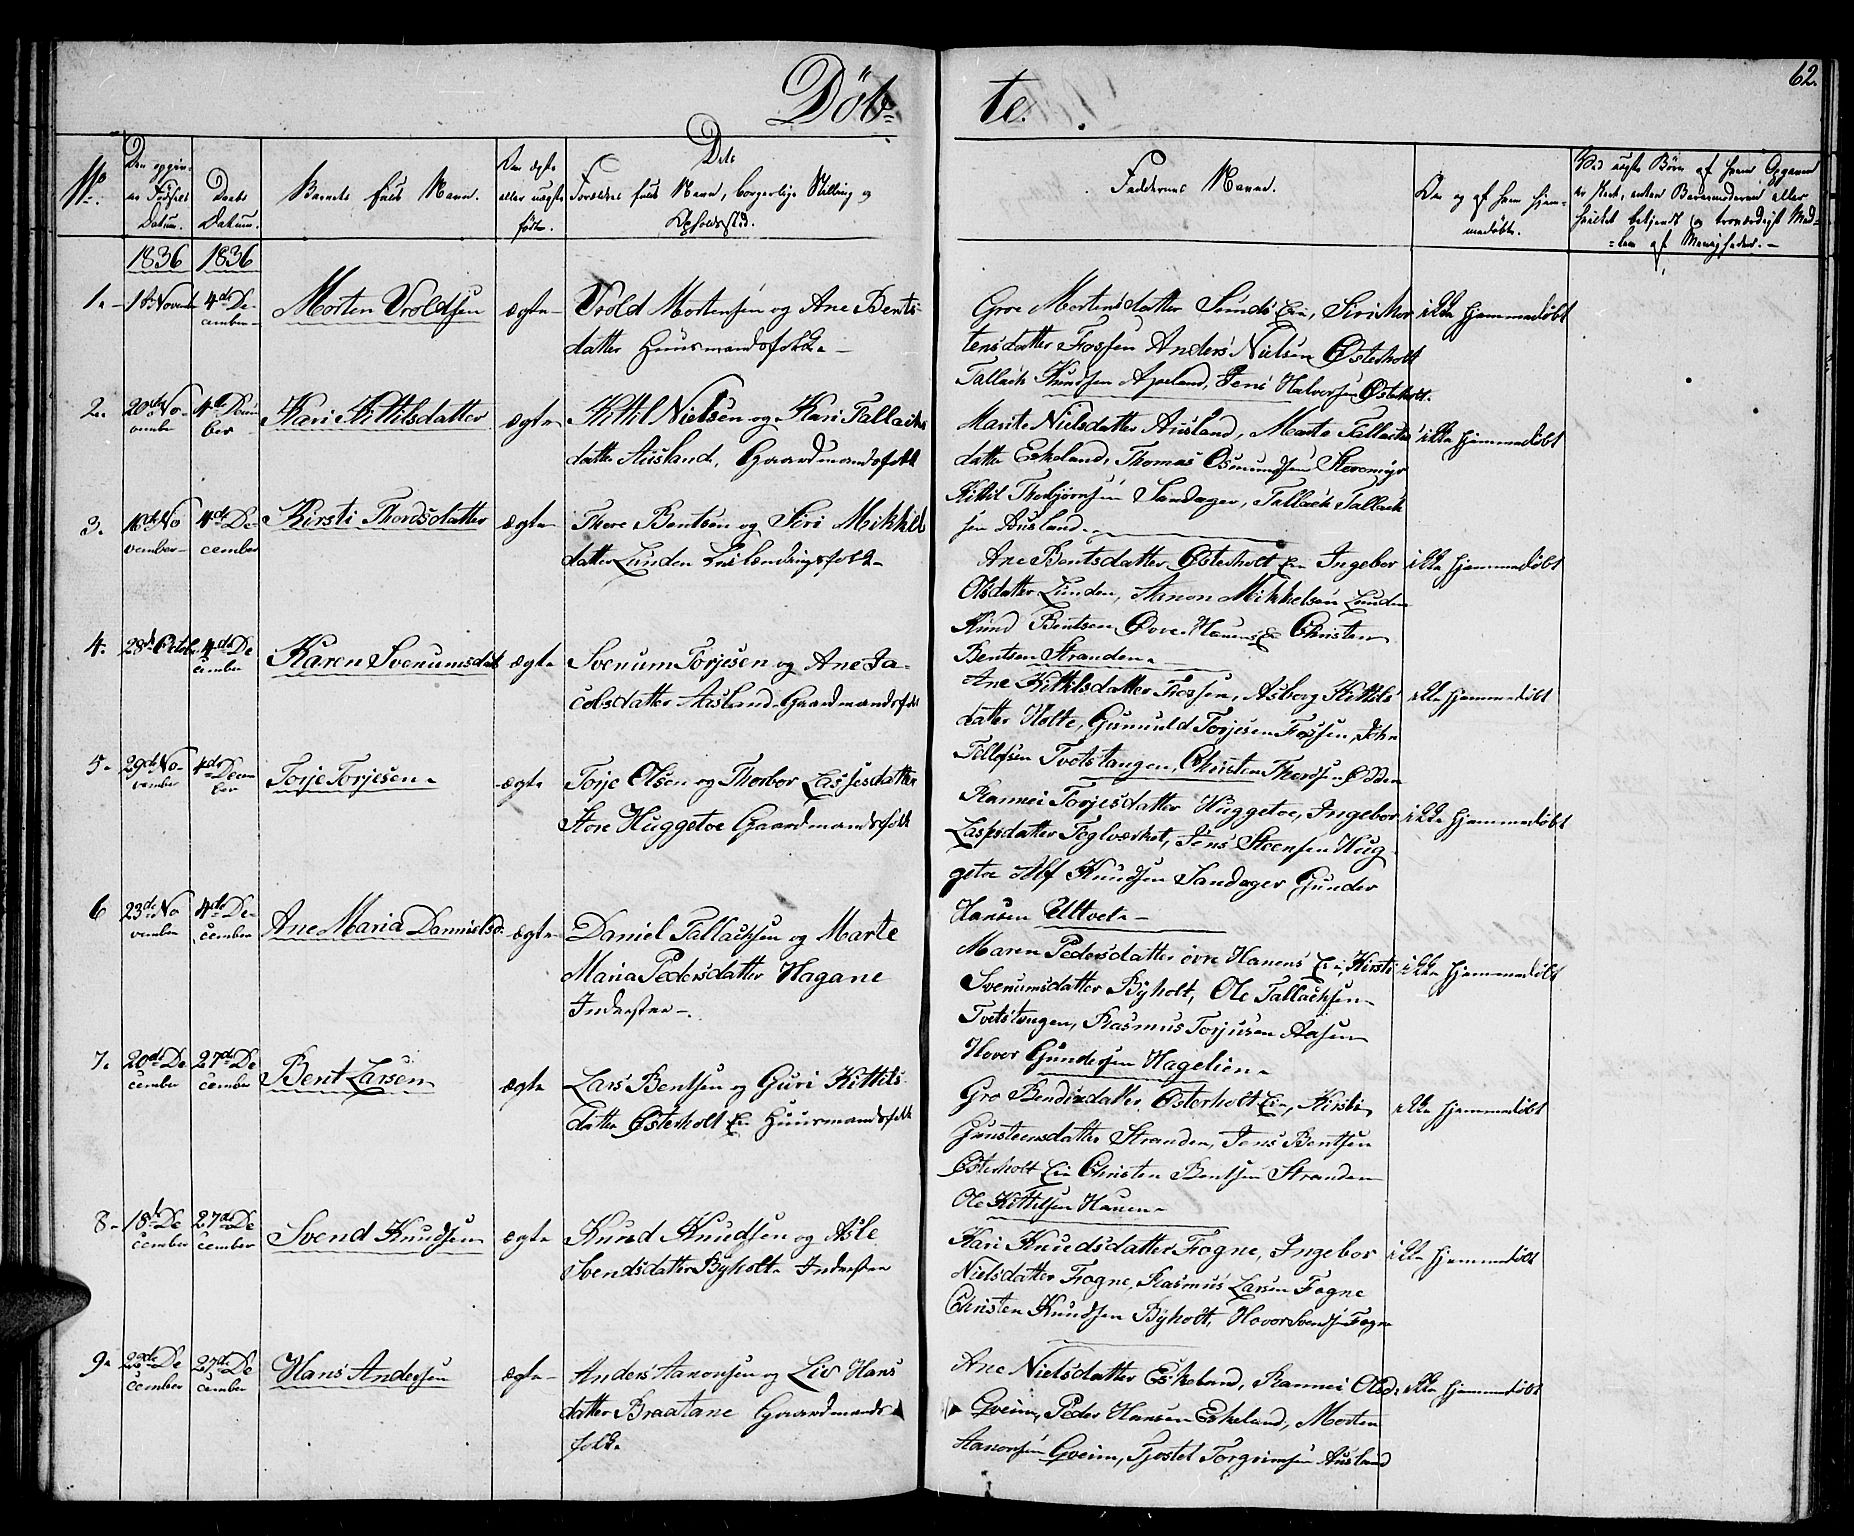 62.
Døb= te.
No.
Datum.
Daabs Datum.
Barnets fulde Navn.
Om ægte eller uægte født.
Forældres fulde Navn, borgerlige Stilling og Opholdssted.
Faddernes Navne.
Om og af hvem hjemmedøbt.
1836 1836
1. 1ste Novemb 4de December Morten Vroldsen ægte Vrold Mortensen og Ane Bents-
datter Huusmandsfolk
Groe Mortensdatter Sunds Eie, Siri Mor
tensdatter Fossen Anders Nielsen Østerholt
Tallack Knudsen Apeland, Jens Halvorsen Østerholt.
ikke hjemmedøbt
2. 20de November 4de December Kari Kittilsdatter ægte Kittil Nielsen og Kari Tallacks
datter Ausland, Gaardmandsfolk
Marite Nielsdatter Ausland, Marte Tallacks
datter Eskeland, Thomas Osmundsen Stenmyr
Kittil Thorbjørnsen Sandager, Tallack Tallack
sen Ausland
ikke hjemmedøbt
3. 16de November 4de December Kirsti Thordsdatter ægte Thore Bentsen og Siri Mikkels
datter Lunden
Ane Bentsdatter Østerholt Eie Ingebor
Olsdatter Lunden, Aanon Mikkelsen Lunden
Knud Bentsen Øvre Hauens Eie Christen
Bentsen Stranden
ikke hjemmedøbt
4. 28de October 4de December Karen Svenumsdat ægte Svenum Torjesen og Ane Ja-
cobsdatter Ausland Gaardmandsfolk
Ane Kittilsdatter Fossen, Asborg Kittils
datter Holte, Gunnuld Torjesen Fossen, John
Tellefsen Tvetstangen, Christen Thordsen Odden
ikke hjemmedøbt
5. 29de November 4de December Torje Torjesen ægte Torje Olsen og Thorbor Lassesdatter
Store Huggetoe Gaardmandsfolk
Rannei Torjesdatter Huggetoe, Ingebor
Laspsdatter Teglværket, Jens Steensen Hug
getoe Alf Knudsen Sandager Gunder
Hansen Ulltveit
ikke hjemmedøbt
6 23de November 4de December Ane Maria Dannielsd. ægte Daniel Tallacksen og Marte
Maria Pedersdatter Hagane
Inderster
Maren Pedersdatter øvre Hanens Eie, Kirsti
Svenumsdatter Byholt, Ole Tallacksen
Tvetstangen, Rasmus Torjusen Aasen
Hovor Gundersen Hagelien
ikke hjemmedøbt
7. 20de December 27de December Bent Larsen ægte Lars Bentsen og Guri Kittils-
datter Østerholt Eie Huusmandsfolk
Gro Bendixdatter Østerholt Eie, Kirsti
Gunsteensdatter Stranden, Jens Bentsen
Østerholt Eie Christen Bentsen Stranden
Ole Kittelsen Hauen
ikke hjemmedøbt
8. 18de December 27de December Svend Knudsen ægte Knud Knudsen og Asle
Svendsdatter Byholt Inderster
Kari Knudsdatter Fogne, Ingebor
Nielsdatter Fogne, Rasmus Larsen Fogne
Christen Knudsen Byholt, Hovor Svendsen Fogne
ikke hjemmedøbt
9. 22de December 27de December Hans Andersen ægte Anders Aanonsen og Liv Hans
datter Braatane Gaardmands
folk
Ane Nielsdatter Eskeland, Rannei Olsd.
Gveim, Peder Hansen Eskeland, Morten
Aanonsen Gveim, Tjostel Torgrimsen Ausland
ikke hjemmedøbt